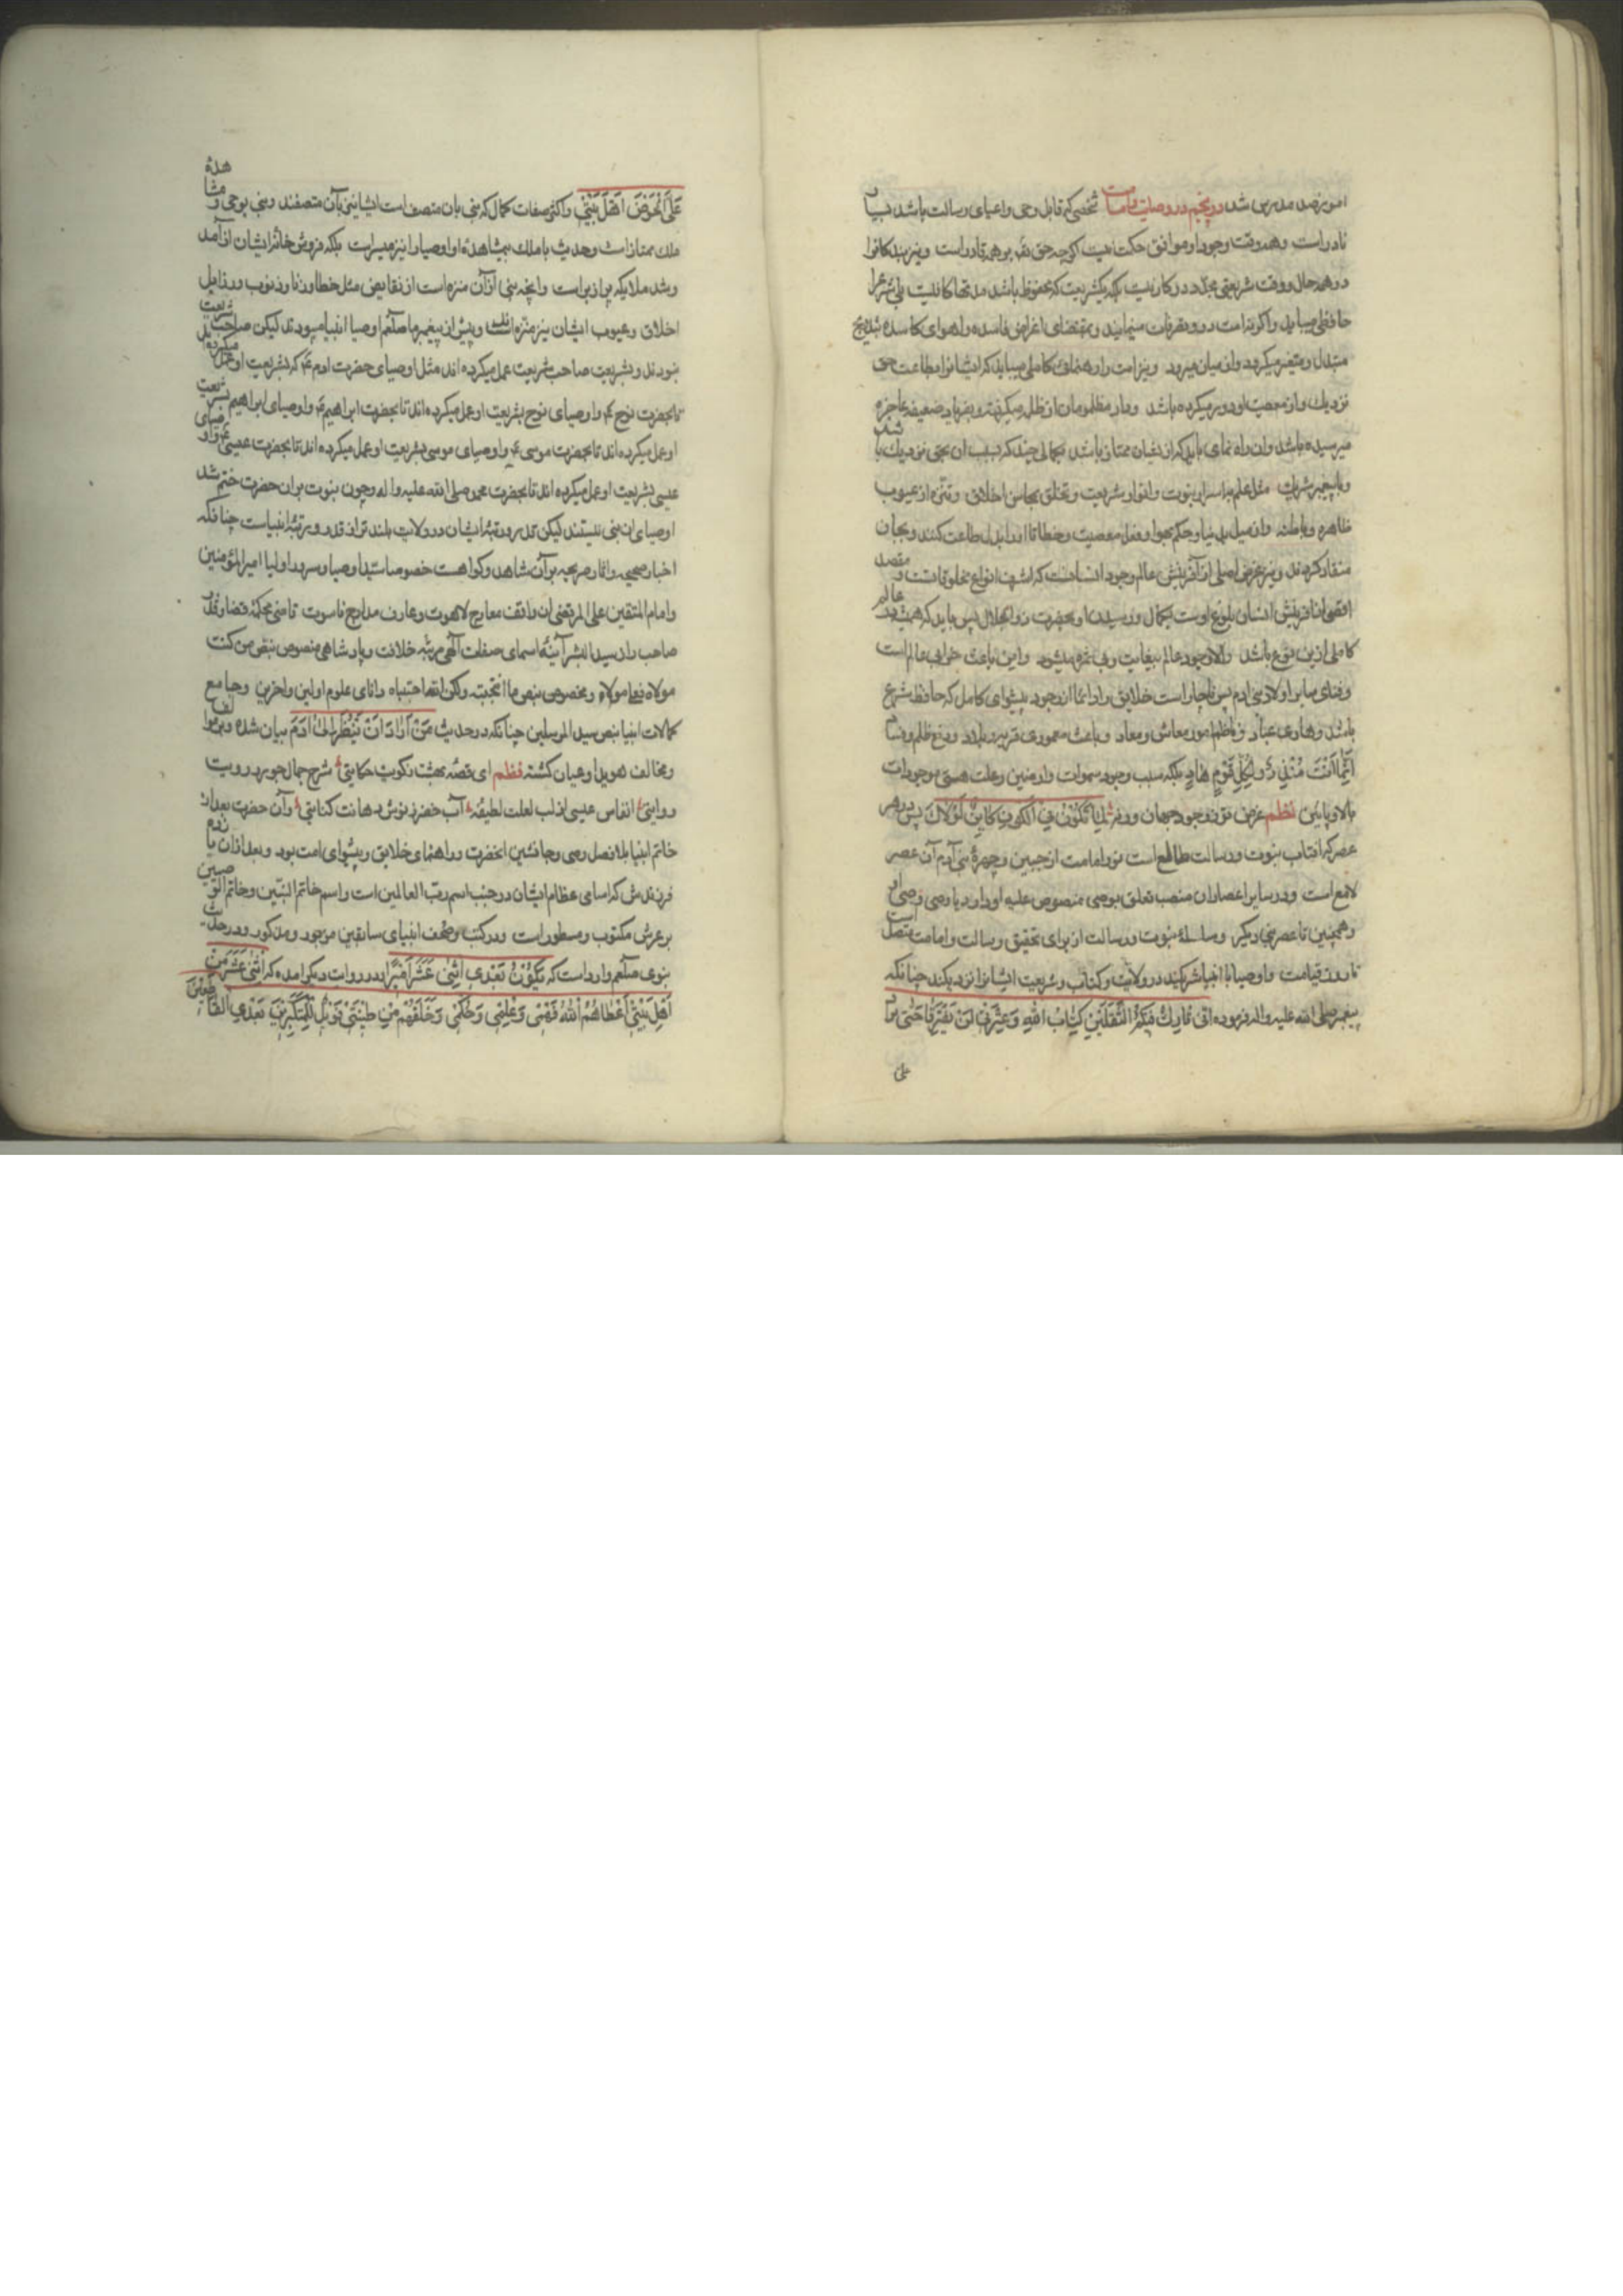 امو نرضد مدبرین شد در پنجم در وصایت و امامت شخصی که قابل وحی و اعبای رسالت باشد بسیار
نادر است و همه وقت وجود او موافق حکمت نیست اگر چه حق تعالی بر همه قادر است و نیز بندکانرا
در همه حال و وقت شریعتی مجدد در کار نیست بلکه یکشریعت که محفوظ باشد مدتها کافیست بلی شرع را
حافظی میباید والا کرامت در و تصرفات مینمایند و بمقتضای اغراض فاسده و اهوای کاسده بتدریج
متبدل و متغیر میکردد و از میان میرود و نیز امت را رهنمائی کاملی میباید که ایشانرا بطاعت حق
نزدیک و از معصیت او دور میکرده باشد و داد مظلومان از ظلمه میکرفته و بفریاد ضعیفه عاجزه
میرسیده باشد و ان راه نمای باید که از دیشان ممتاز باشد بکمالی چند که بسبب ان بحق نزدیک باشد
و با پیغمبر شریک مثل علم باسرار نبوت و انوار شریعت و تخلق بمحاسن اخلاق و تنزه از عیوب
ظاهره و باطنه و از میل بدنیا و حکم بهوا و فعل معصیت و خطا تا او را بدل طاعت کنند و بجان
منقاد کردند و نیز غرض اصلی از آفرینش عالم وجود انسانست که اشرف انواع مخلوقاتست و مقصد
اقصی از آفرینش انسان بلوغ اوست بکمال و رسیدن او بحضرت ذو الجلال پس باید که همیشه در عالم
کاملی ازین نوع باشد والا وجود عالم بیغایت و بی ثمره میشود و این باعث خرابی عالم است
و فنای سایر اولاد بنی ادم پس ناچار است خلایق را دائما از وجود پیشوای کامل که حافظ شرع
باشد و هادی عباد و ناظم امور معاش و معاد و باعث معموری قری و بلاد و رفع ظلم و فساد
انما انت منذر ولکل قوم هاد بلکه سبب وجود سموات و ارضین و علت هستی موجودات
بالا و پائین نظم غرض تو ز وجود جهان ورنه لما تکون فی الکون کاین لولاک پس در هر
عصر که افتاب نبوت و رسالت طالع است نور امامت از جبین و چهرهٔ بنی آدم آن عصر
لامع است و در سایر اعصار ان منصب تعلق بوصی منصوص علیه او دارد یا وصی وصی او
و همچنین تا عصر نبی دیکر و سلسلهٔ نبوت و رسالت از برای تحقیق رسالت و امامت متصل است
تا روز قیامت و اوصیا با انبیا شریکند در ولایت و کتاب و شریعت ایشانرا نزدیکند چنانکه
پیغمبر صلی الله علیه واله فرموده انی تارک فیکم الثقلین کتاب الله وعترتی لن یفترقا حتی یردا
علی
علی الحوض اهل بیتی و اکثر صفات کمال که نبی بان متصف است ایشان نیز بآن متصفند و نبی بوحی و مشاهدهٔ
ملک ممتاز است و حدیث با ملک بیمشاهدهٔ او اوصیا را نیز میسر است بلکه فروش خانهٔ ایشان از آمد
و شد ملایکه پر از پر است و انچه نبی از آن منزه است از نقایص مثل خطا و زنا و ذنوب و رذایل
اخلاق و عیوب ایشان نیز منزه است و پیش از پیغمبر ما صلعم اوصیا انبیا میبودند لیکن صاحب شریعت
نبودند و بشریعت صاحب شریعت عمل میکرده اند مثل اوصیای حضرت ادم ع که بشریعت او عمل میکرده اند
تا بحضرت نوح ع و اوصیای نوح بشریعت او عمل میکرده اند تا بحضرت ابراهیم ع و اوصیای ابراهیم بشریعت
او عمل میکرده اند تا بحضرت موسی ع و اوصیای موسی بشریعت او عمل میکرده اند تا بحضرت عیسی ع و اوصیای
عیسی بشریعت او عمل میکرده اند تا بحضرت محمد صلی الله علیه واله و چون نبوت بران حضرت ختم شد
اوصیای ان نبی نیستند لیکن قدر و رتبهٔ ایشان در ولایت بلند تر از قدر و رتبهٔ انبیاست چنانکه
اخبار صحیحه و اثار صریحه بر آن شاهد و کواهست خصوصا سید اوصیا و سرور اولیا امیر المؤمنین
و امام المتقین علی المرتضی ان واقف معارج لاهوت و عارف مدارج ناسوت قاضی محکمهٔ قضا و قدر
صاحب راز سید البشر آینهٔ اسمای صفات آلهی مرتبهٔ خلافت و پادشاهی منصوص بنص من کنت
مولاه فعلی مولاه و مخصوص بنص ما انتجیته ولکن الله اجتباه دانای علوم اولین و اخرین و جامع
کمالات انبیا بنص سید المرسلین چنانکه در حدیث من اراد ان ینظر الی ادم بیان شده و بر موالف
و مخالف هویدا و عیان کشته نظم ای قصهٔ بهشت ز کویت حکایتی شرح جمال حور ز رویت
روایتی انفاس عیسی از لب لعلت لطیفهٔ آب خضر ز نوش دهانت کنایتی و آن حضرت بعد از
خاتم انبیا بلا فصل وصی و جانشین انحضرت و راهنمای خلایق و پیشوای امت بود و بعد ازان یازده
فرزندش که اسامی عظام ایشان در جنب اسم رب العالمین است و اسم خاتم النبیین و خاتم الوصیین
بر عرش مکتوب و مسطور است و در کتب و صحف انبیای سابقین موجود و مذکور و در حدیث
نبوی صلعم وارد است که یکون بعدی اثنی عشر امیرا و در روایت دیکر امده که اثنی عشر من
اهل بیتی اعطاهم الله فهمی وعلمی وحکمی وخلقهم من طینتی فویل للمتکبرین بعدی القاطعین